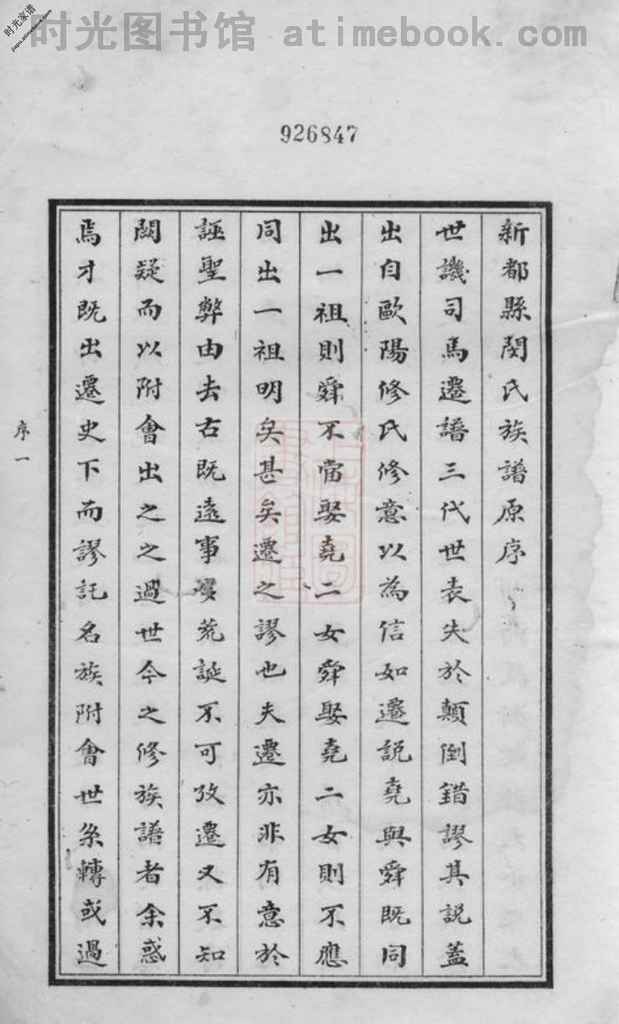 时光图书馆 atimebook.com
时光家谱
926847
新都縣閔氏族譜原序
世譏司馬遷譜三代世表失於顛倒錯謬其說蓋
出自歐陽修氏修意以為信如遷說堯與舜既同
出一祖則舜不當娶堯二女舜娶堯二女則不應
同出一祖明矣甚矣遷之謬也夫遷亦非有意於
誣聖弊由去古既遠事屡荒誕不可攷遷又不知
闕疑而以附會出之之過世今之修族譜者余惑
焉才既出遷史下而謬託名族附會世系轉或過
序一